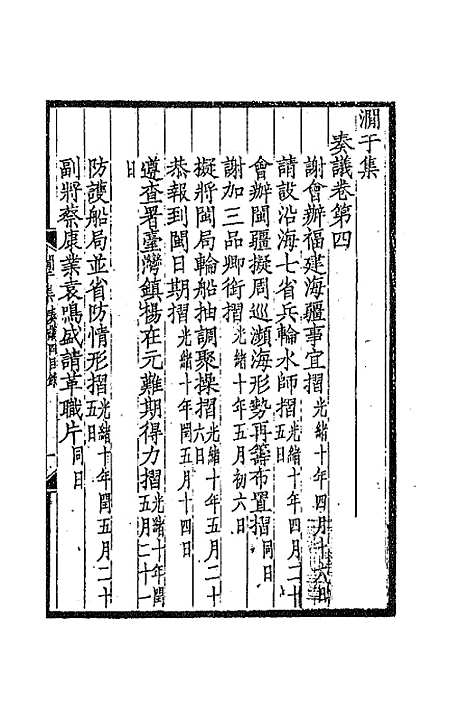 澗于集
奏議卷第四
謝會辦福建海疆事宜摺光緒十年四月十六日
請設沿海七省兵輪水師摺光緒十年四月二十五日
會辦閩疆擬周巡瀕海形勢再籌布置摺同日
謝加三品卿銜摺光緒十年五月初六日
擬將閩局輪船抽調聚操摺光緒十年五月初六日
恭報到閩日期摺光緒十年閏五月十四日
遵查署臺灣鎮楊在元難期得力摺光緒十年閏五月二十一日
防護船局並省防情形摺光緒十年閏五月二十五日
副將蔡康業袁鳴盛請革職片同日
澗于集奏議四目錄
一